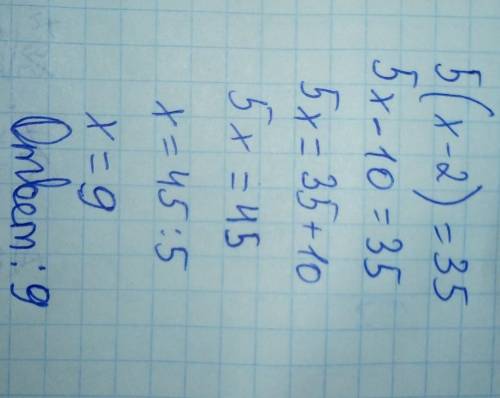 5(x-2)=35
5x-10=35
5x=35+10
5x=45
x=45:5
x=9
Ответ: 9